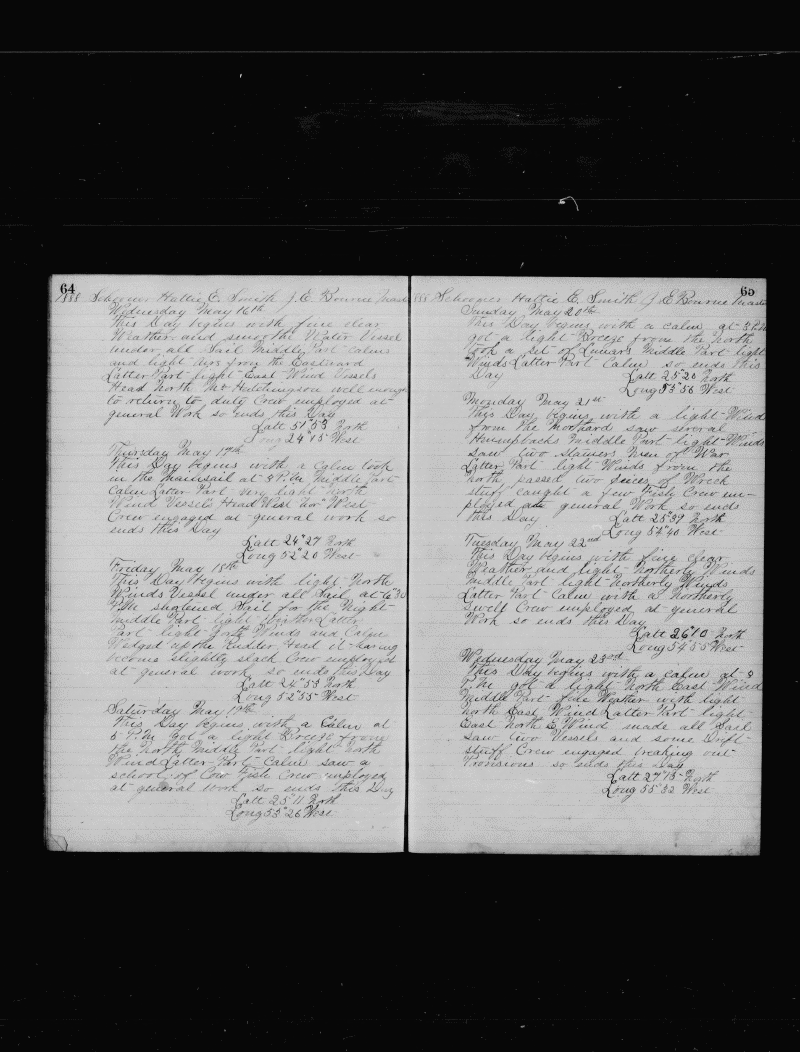 64
1888 Schooner Hattie E. Smith J. E. Bourne Master
Wednesday May 16th
This Day begins with fine clear
Weather and smooth Water Vessel
under all Sail Middle Part calms
and light airs from the Eastward
Latter Part light East Wind Vessels
Head North Mr Hutchingson well enough
to return to duty Crew employed at
general Work so ends this Day
Latt 51°53 North
Long 24°15 West
Thursday May 17th
This Day begins with a Calm took
in the Mainsail at 8 P.M. Middle Part
Calm Latter Part very light North
Wind Vessels Head West Nor West
Crew engaged at general work so
ends this Day
Latt 24°27 North
Long 52°20 West
Friday May 18th
This Day begins with light North
Winds Vessel under all Sail, at 6.30
P.M. shortened Sail for the Night
Middle Part light Latter
Part light North Winds and Calm
Wedged up the Rudder Head it having
become slightly slack Crew employed
at general work so ends this Day
Latt 24°53 North
Long 52°55 West
Saturday May 19th
This Day begins with a Calm at
5 P.M. got a light Breeze from
the North Middle Part light North
Wind Latter Part Calm saw a
school of Cow Fish Crew employed
at general work so ends this Day
Latt 25°11 North
Long 53°26 West
65
1888 Schooner Hattie E. Smith J E Bourne Master
Sunday May 20th
This Day begins with a calm at 8 P.M.
got a light Breeze from the North
took a set of Lunars Middle Part light
Winds Latter Part Calm so ends this
Day
Latt 25°20 North
Long 53°56 West
Monday May 21st
This Day begins with a light Wind
from the Northard saw several
Humpbacks Middle Part light Winds
saw two Steamers Men of War
Latter Part light Winds from the
North passed two pieces of Wreck
stuff caught a few Fish Crew em-
ployed at general Work so ends
this Day
Latt 25°39 North
Long 54°40 West
Tuesday May 22nd
This Day begins with fine clear
Weather and light Northerly Winds
Middle Part light Northerly Winds
Latter Part Calm with a Northerly
Swell Crew employed at general
Work so ends this Day
Latt 26°10 North
Long 54°55 West
Wednesday May 23rd
This Day begins with a calm at 8
P.M. got a light North East Wind
Middle Part fine Weather with light
North East Wind Latter Part light
East North E Wind made all Sail
saw two Vessels and some Drift
stuff Crew engaged breaking out
Provisions so ends this Day
Latt 27°15 North
Long 55°32 West